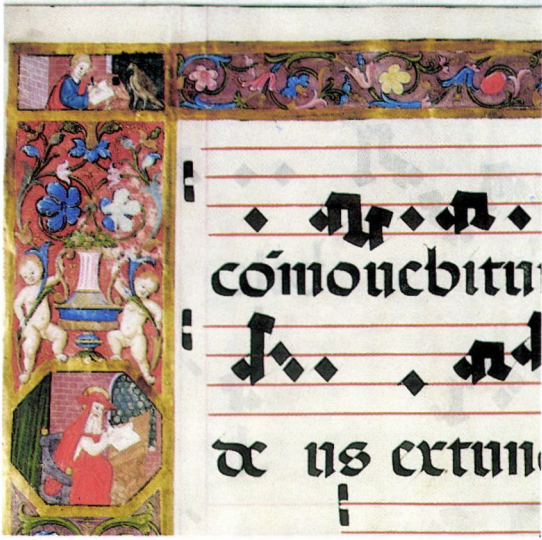 cōmouebitu
de us extun